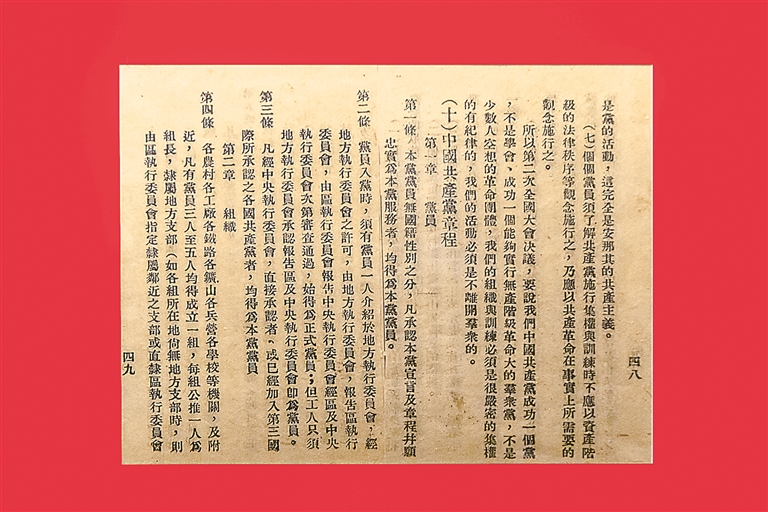 是黨的活動，這完全是安那其的共產主義。
（七）個個黨員須了解共產黨施行集權與訓練時不應以資產階
級的法律秩序等觀念施行之，乃應以共產革命在事實上所需要的
觀念施行之。
所以第二次全國大會決議，要說我們中國共產黨成功一個黨
，不是學會，成功一個能夠實行無產階級革命大的羣衆黨，不是
少數人空想的革命團體，我們的組織與訓練必須是很嚴密的集權
的有紀律的，我們的活動必須是不離開羣衆的。
（十）中國共產黨章程
第一章　黨員
第一條　本黨黨員無國籍性別之分，凡承認本黨宣言及章程幷願
忠實爲本黨服務者，均得爲本黨黨員。
第二條　黨員入黨時，須有黨員一人介紹於地方執行委員會，經
地方執行委員會之許可，由地方執行委員會，報告區執行
委員會，由區執行委員會報告中央執行委員會經區及中央
執行委員會次第審查通過，始得爲正式黨員；但工人只須
地方執行委員會承認報告區及中央執行委員會即爲黨員。
第三條　凡經中央執行委員會，直接承認者、或已經加入第三國
際所承認之各國共產黨者，均得爲本黨黨員
第二章　組織
第四條　各農村各工廠各鐵路各鑛山各兵營各學校等機關，及附
近，凡有黨員三人至五人均得成立一組，每組公推一人爲
組長，隸屬地方支部（如各組所在地尙無地方支部時，則
由區執行委員會指定隸屬鄰近之支部或直隸區執行委員會
四八
四九